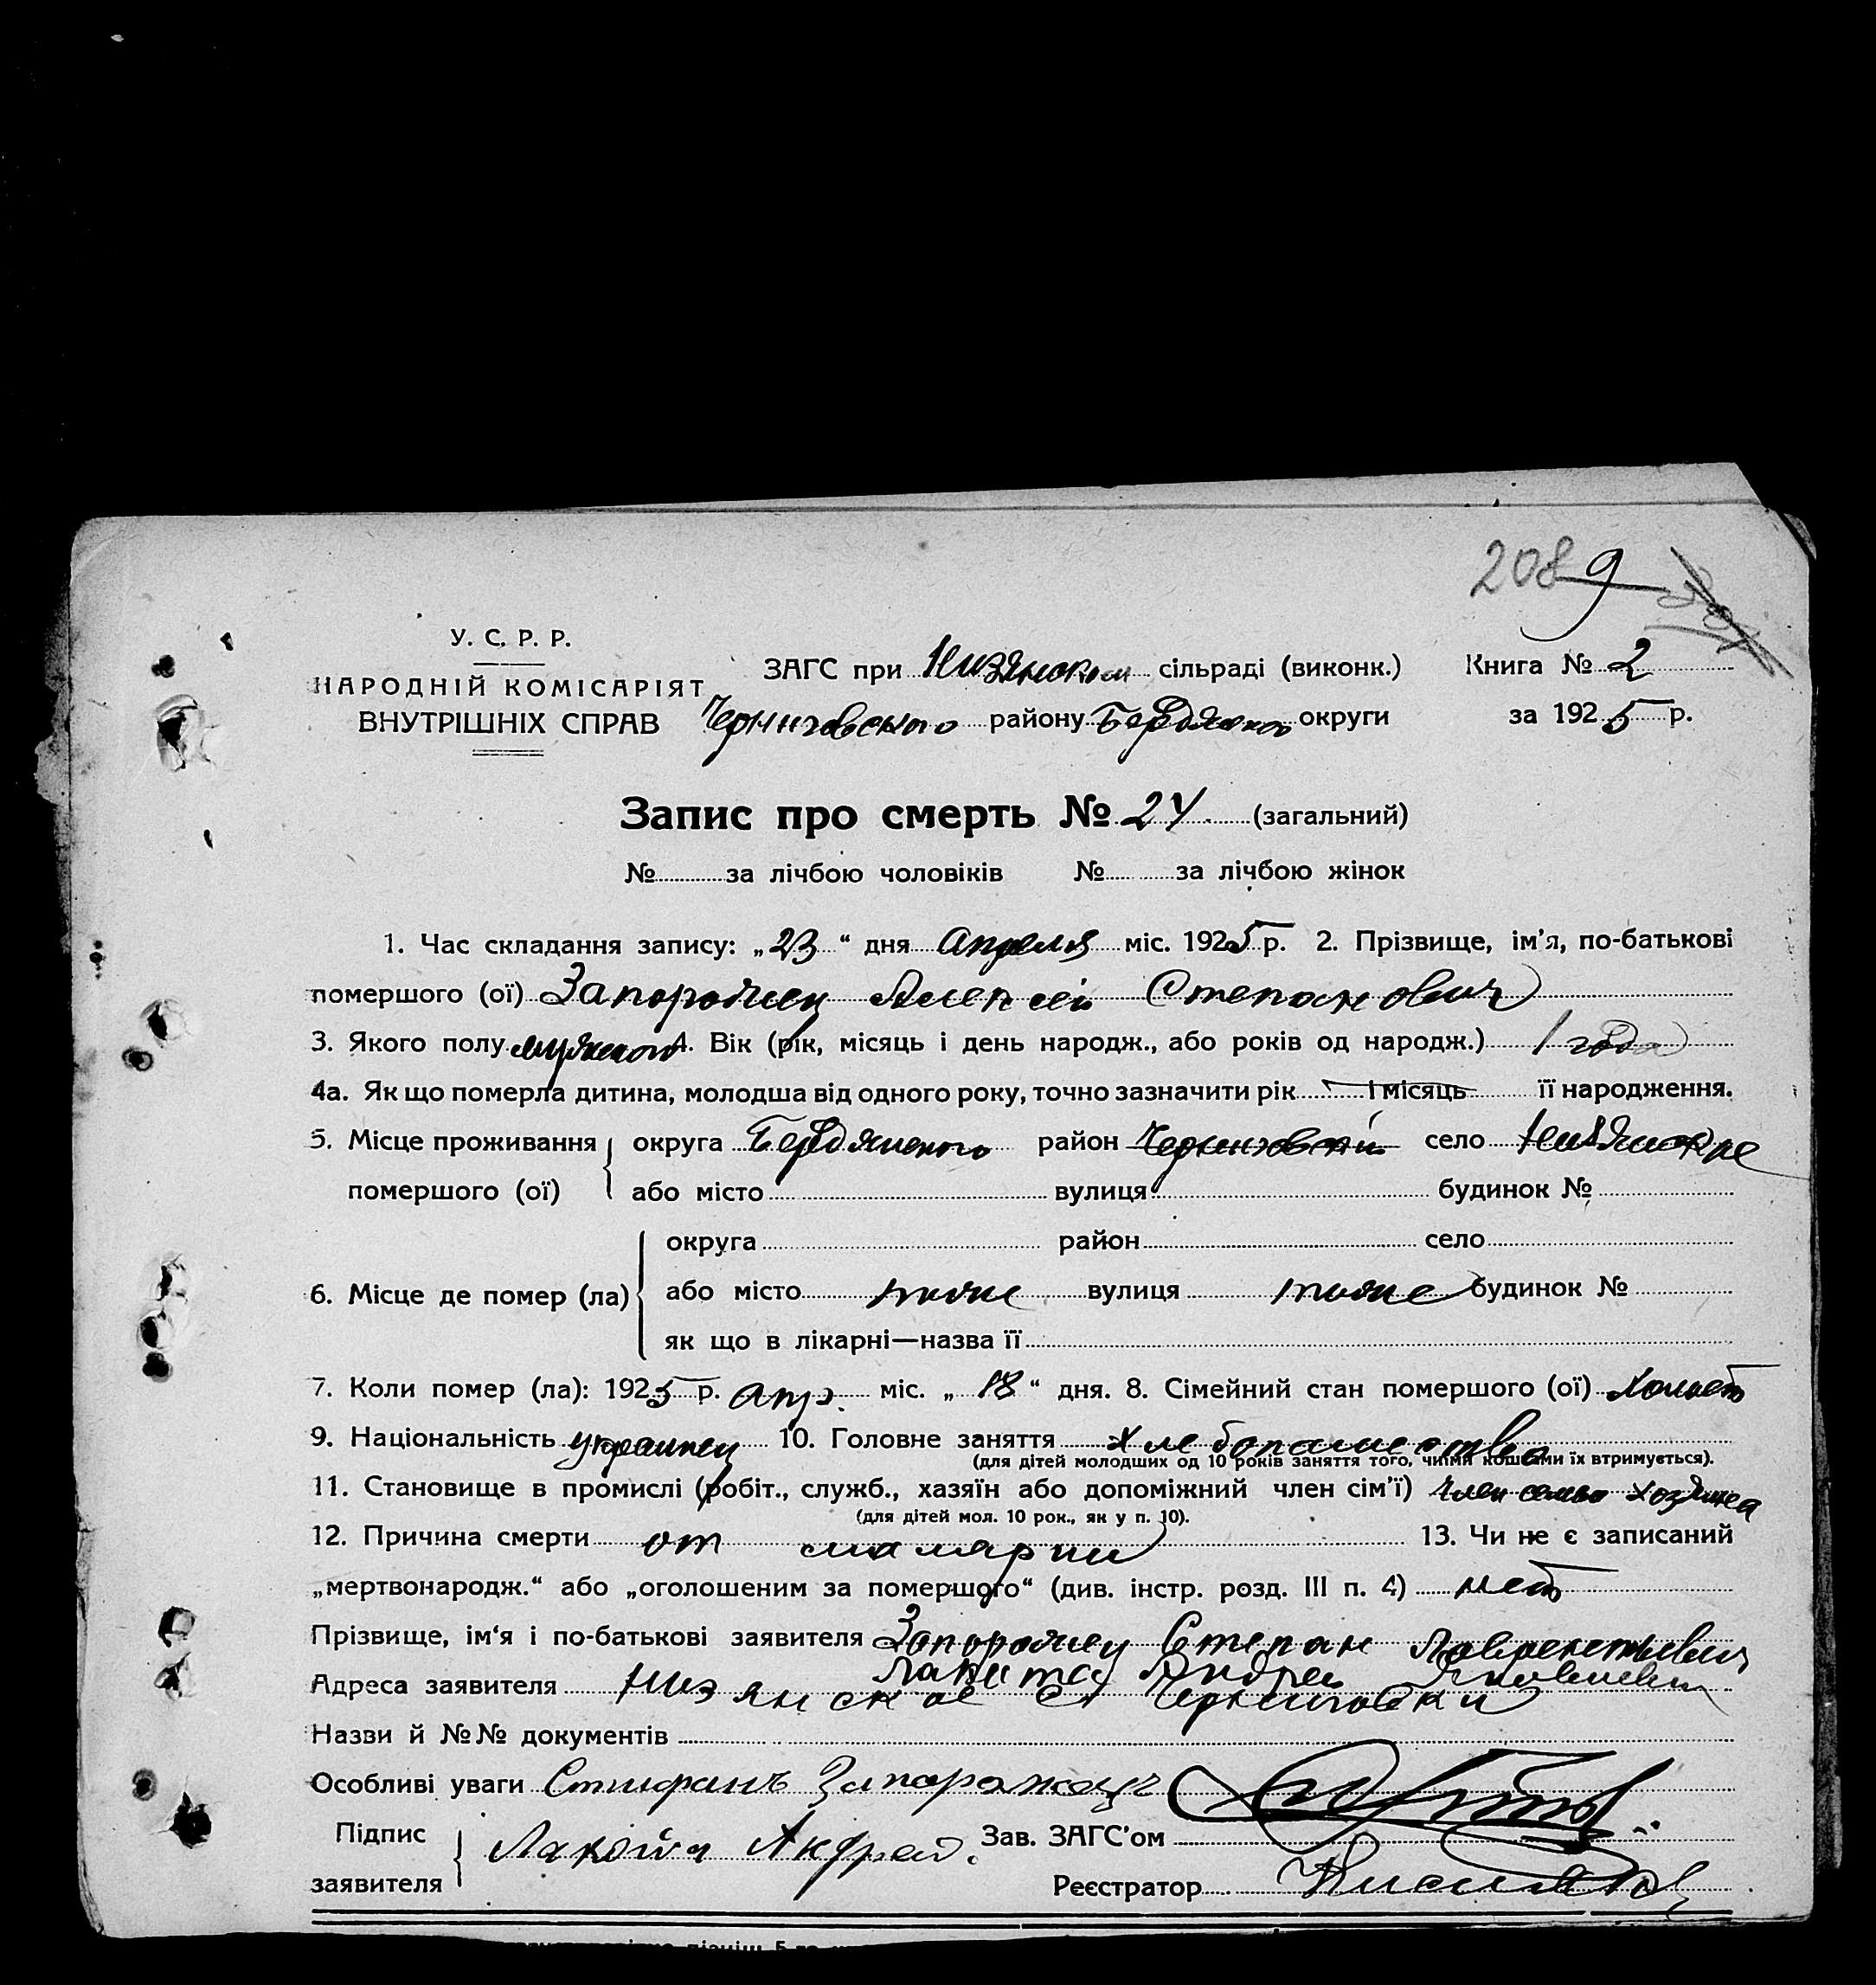 208 9
У. С. Р. Р.
НАРОДНІЙ КОМІСАРІЯТ
ВНУТРІШНІХ СПРАВ
ЗАГС при Низянском сільраді (виконк.) Книга № 2
Черниговского району Бердянского округи за 1925 р.
Запис про смерть № 24 (загальний)
№ за лічбою чоловіків № за лічбою жінок
1. Час складання запису: „23“ дня Апреля міс. 1925 р. 2. Прізвище, ім’я, по-батькові
помершого (ої) Запорожец Алексей Степанович
3. Якого полу мужского 4. Вік (рік, місяць і день народж., або років од народж.) 1 года
4а. Як що померла дитина, молодша від одного року, точно зазначити рік і місяць її народження.
5. Місце проживання округа Бердянского район Черниговский село
помершого (ої) або місто вулиця будинок №
округа район село
6. Місце де помер (ла) або місто тоже вулиця тоже будинок №
як що в лікарні—назва її
7. Коли помер (ла): 1925 р. апр. міс. „18“ дня. 8. Сімейний стан помершого (ої) холост
9. Національність украинец 10. Головне заняття хлебопашество
(для дітей молодших од 10 років заняття того, чиїми коштами їх втримується).
11. Становище в промислі (робіт., служб., хазяїн або допоміжний член сім’ї) член семьи хозяина
(для дітей мол. 10 рок., як у п. 10).
12. Причина смерти от малярии 13. Чи не є записаний
„мертвонародж.“ або „оголошеним за помершого“ (див. інстр. розд. III п. 4) нет
Прізвище, ім‘я і по-батькові заявителя Запорожец Степан Лаврентьевич
Андрей Яковлевич
Адреса заявителя Низянское с Черниговки
Назви й №№ документів
Особливі уваги Стифанъ Запорожецъ
Підпис
заявителя Андрей.
Зав. ЗАГС’ом
Реєстратор